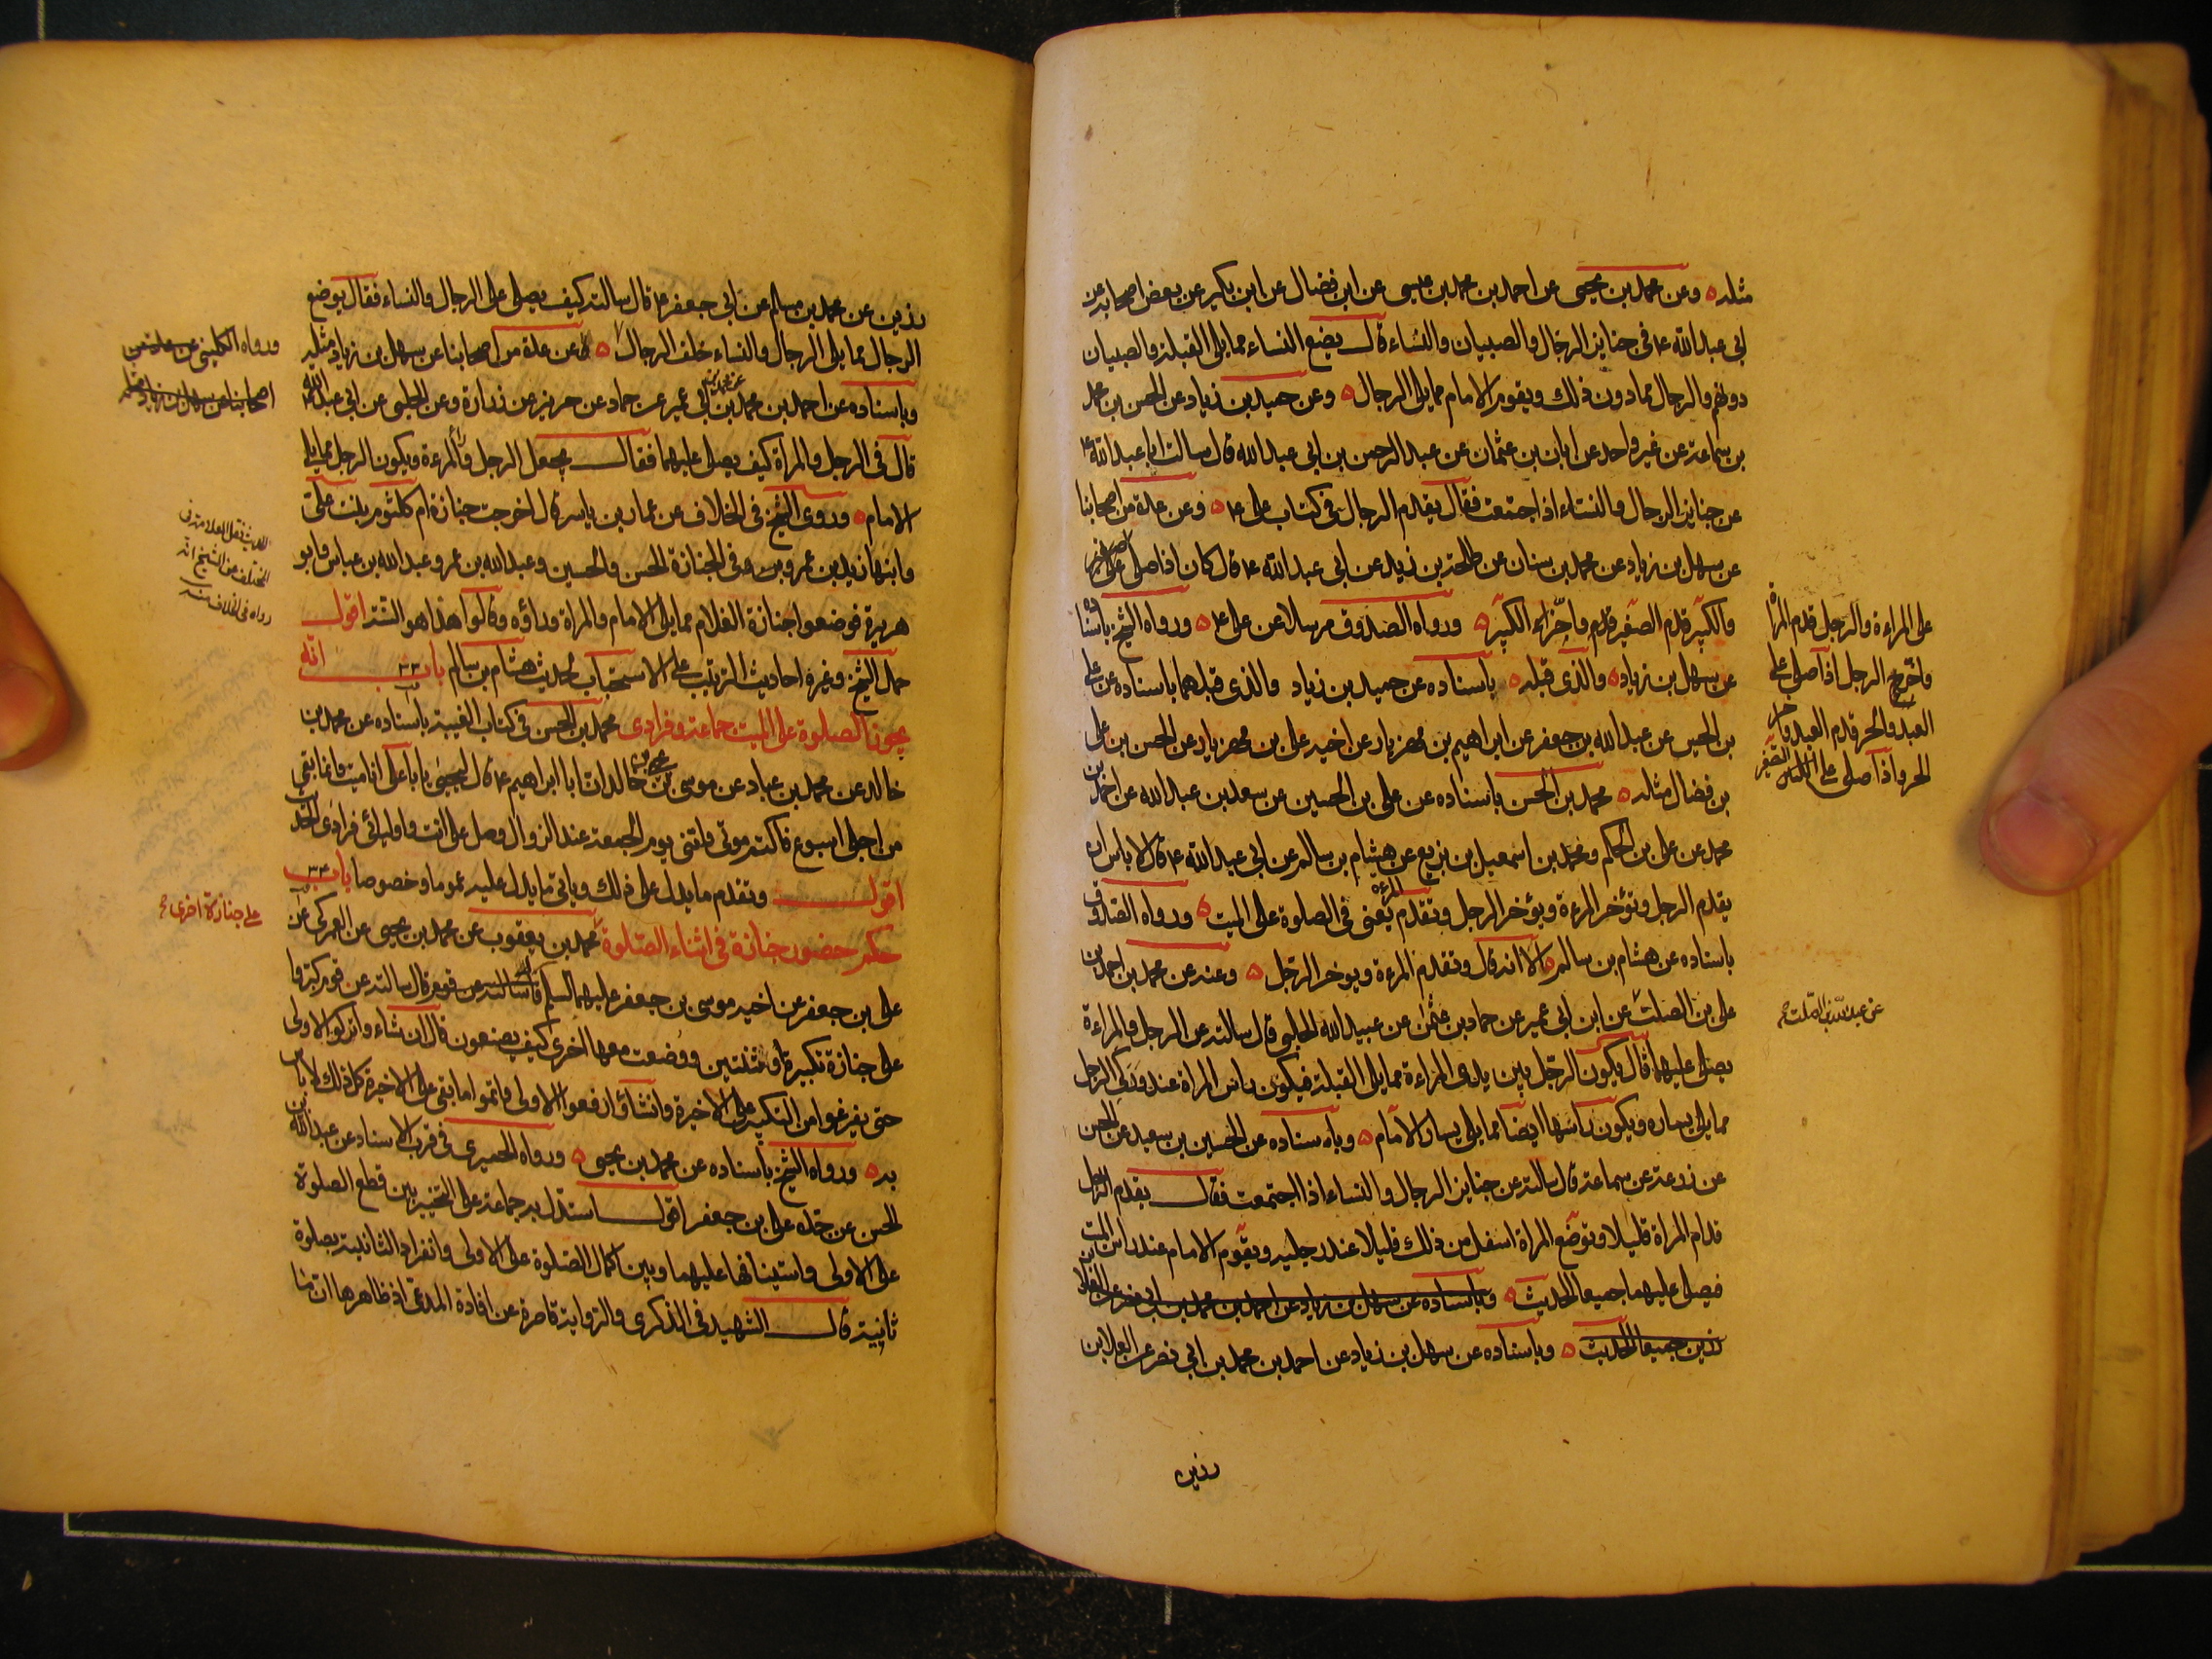 مثله ه وعن محمد بن يحيى عن احمد بن محمد بن عيسى عن ابن فضال عن ابن بكير عن بعض اصحابه عن
ابى عبد الله ع فى جنايز الرجال والصبيان والنساء قال يضع النساء مما يلى القبلة والصبيان
دونهم والرجال مما دون ذلك ويقوم الامام مما يلى الرجال ه وعن حميد بن زياد عن الحسن بن محمد
بن سماعة عن غير واحد عن ابان بن عثمان عن عبد الرحمن بن ابى عبد الله قال سالت ابا عبد الله ع
عن جنايز الرجال والنساء اذا اجتمعت فقال يقدم الرجال فى كتاب على ع ه وعن عدة من اصحابنا
عن سهل بن زياد عن محمد بن سنان عن طلحة بن زيد عن ابى عبد الله ع قال كان اذا صلى على
على المراءة والرجل قدم المراة
واخر الرجل اذا صلى على
العبد والحر قدم العبد واخر
الحر واذا صلى على الصغير
والكبير قدم الصغير واخر الكبير ه ورواه الصدوق مرسلا عن على ع ه ورواه الشيخ باسناده
عن سهل بن زياد ه والذى قبله ه باسناده عن حميد بن زياد والذى قبلهما باسناده عن على
بن الحسين عن عبد الله بن جعفر عن ابراهيم بن مهزيار عن اخيه على بن مهزيار عن الحسن بن على
بن فضال مثله ه محمد بن الحسن باسناده عن على بن الحسين عن سعد بن عبد الله عن احمد بن
محمد عن على بن الحكم ومحمد بن اسمعيل بن بزيع عن هشام بن سالم عن ابى عبد الله ع قال لا باس ان
يقدم الرجل وتؤخر المرءة ويؤخر الرجل وتقدم المرءه يعنى فى الصلوة على الميت ه ورواه الصدوق
باسناده عن هشام بن سالم الا انه قال وتقدم المرءة ويوخر الرجل ه وعنه عن محمد بن احمد بن
عن عبد الله بن الصلت
على بن الصلت عن ابن ابى عمير عن حماد بن عثمن عن عبيد الله الحلبى قال سالته عن الرجل والمراءة
يصلى عليهما قال يكون الرجل بين يدى المراءة مما يلى القبلة فيكون راس المراة عند وركى الرجل
مما يلى يساره ويكون راسها ايضا مما يلى يسار الامام ه وباسناده عن الحسين بن سعيد عن الحسن
عن زرعة عن سماعة قال سالته عن جنايز الرجال والنساء اذا اجتمعت فقال يقدم الرجل
قدام المراة قليلا وتوضع المراة اسفل من ذلك قليلا عند رجليه ويقوم الامام عند راس الميت
فيصلى عليهما جميعا الحديث ه وباسناده عن سهل بن زياد عن احمد بن محمد بن ابى نصر عن العلا بن
رزين جميعا الحديث ه وباسناده عن سهل بن زياد عن احمد بن محمد بن ابى نصر عن العلا بن
رزين
رزين عن محمد بن مسلم عن ابى جعفر ع قال سالته كيف يصلى على الرجال والنساء فقال يوضع
الرجال مما يلى الرجال والنساء خلف الرجال ه عن عدة من اصحابنا عن سهل بن زياد مثله
ورواه الكلينى عن عدة من
اصحابنا عن سهل بن زياد مثله
وباسناده عن احمد بن محمد بن ابى عمير عن حماد عن حريز عن زرارة وعن الحلبى عن ابى عبد الله ع
قال فى الرجل والمراة كيف يصلى عليهما فقال يجعل الرجل والمرءة ويكون الرجل مما يلى
الامام ه وروى الشيخ فى الخلاف عن عمار بن ياسر قال اخرجت جنازة ام كلثوم بنت على
وابنها زيد بن عمر وفى الجنازة الحسن والحسين وعبد الله بن عمر وعبد الله بن عباس وابو
رواه فى الخلاف
هريرة فوضعوا جنازة الغلام مما يلى الامام والمراة وراؤه وقالوا هذا هو السنة اقول
حمل الشيخ وغيره احاديث الترتيب على الاستحباب لحديث هشام بن سالم باب ٣٣ انه
يجوز الصلوة على الميت جماعة وفرادى محمد بن الحسن فى كتاب الغيبة باسناده عن محمد بن
خالد عن محمد بن عباد عن موسى بن يحيى بن خالد ان ابا ابراهيم ع قال ليحيى يا ابا على انا ميت وانما بقى
من اجلى اسبوع فاكتم موتى واتنى يوم الجمعة عند الزوال وصل على انت واوليائى فرادى الحديث
اقول وتقدم ما يدل على ذلك وياتى ما يدل عليه عموما وخصوصا باب ٣٤
على جنازة اخرى
حكم حضور جنازة فى اثناء الصلوة محمد بن يعقوب عن محمد بن يحيى عن العمركى عن
على بن جعفر عن اخيه موسى بن جعفر عليهما السلم قال سالته عن قوم قال سالته عن قوم كبروا
على جنازة تكبيرة او ثنتين ووضعت معها اخرى كيف يصنعون قال ان شاءوا تركوا الاولى
حتى يفرغوا من التكبير على الاخيرة وان شاؤا رفعوا الاولى واتموا ما بقى على الاخيرة كل ذلك لا باس
به ه ورواه الشيخ باسناده عن محمد بن يحيى ه ورواه الحميرى فى قرب الاسناد عن عبد الله بن
الحسن عن جده على بن جعفر اقول استدل به جماعة على التخيير بين قطع الصلوة
على الاولى واستينافها عليهما وبين اكمال الصلوة على الاولى وانفراد الثانية بصلوة
ثانية قال الشهيد فى الذكرى والرواية قاصرة عن افادة المدعى اذ ظاهرها ان ما